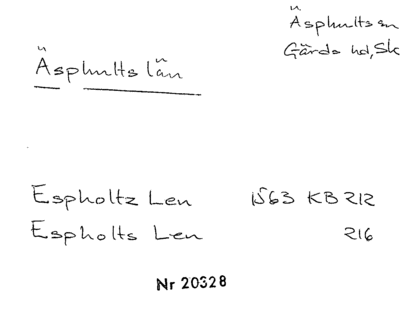 Äsphults sn
Gärds hd, Sk
Äsphults län
Espholtz Len 1563 KB 212
Espholts Len 216
Nr 20328